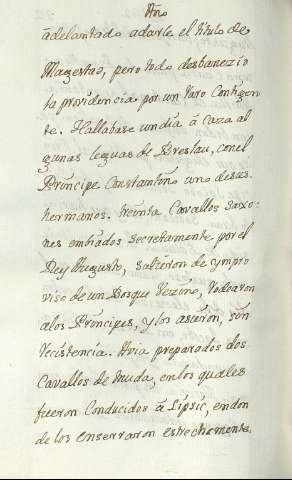 Año
adelantado adarle el titulo de
Magestad, pero todo desbanezio
la providencia por un raro Contigen
te. Hallabase un dia á Caza al
gunas leguas de Breslau, con el
Principe Constantino uno de sus
hermanos. treinta Cavallos saxo-
nes embiados secretamente, por el
Rey Augusto, salieron de ympro
viso de un Bosque Vezino, rodearon
alos Principes, y los asieron, sin
recistencia. Avia preparados dos
Cavallos de muda, en los quales
fueron Conducidos á Lipsic, en don
de los enserraron estrechamente.